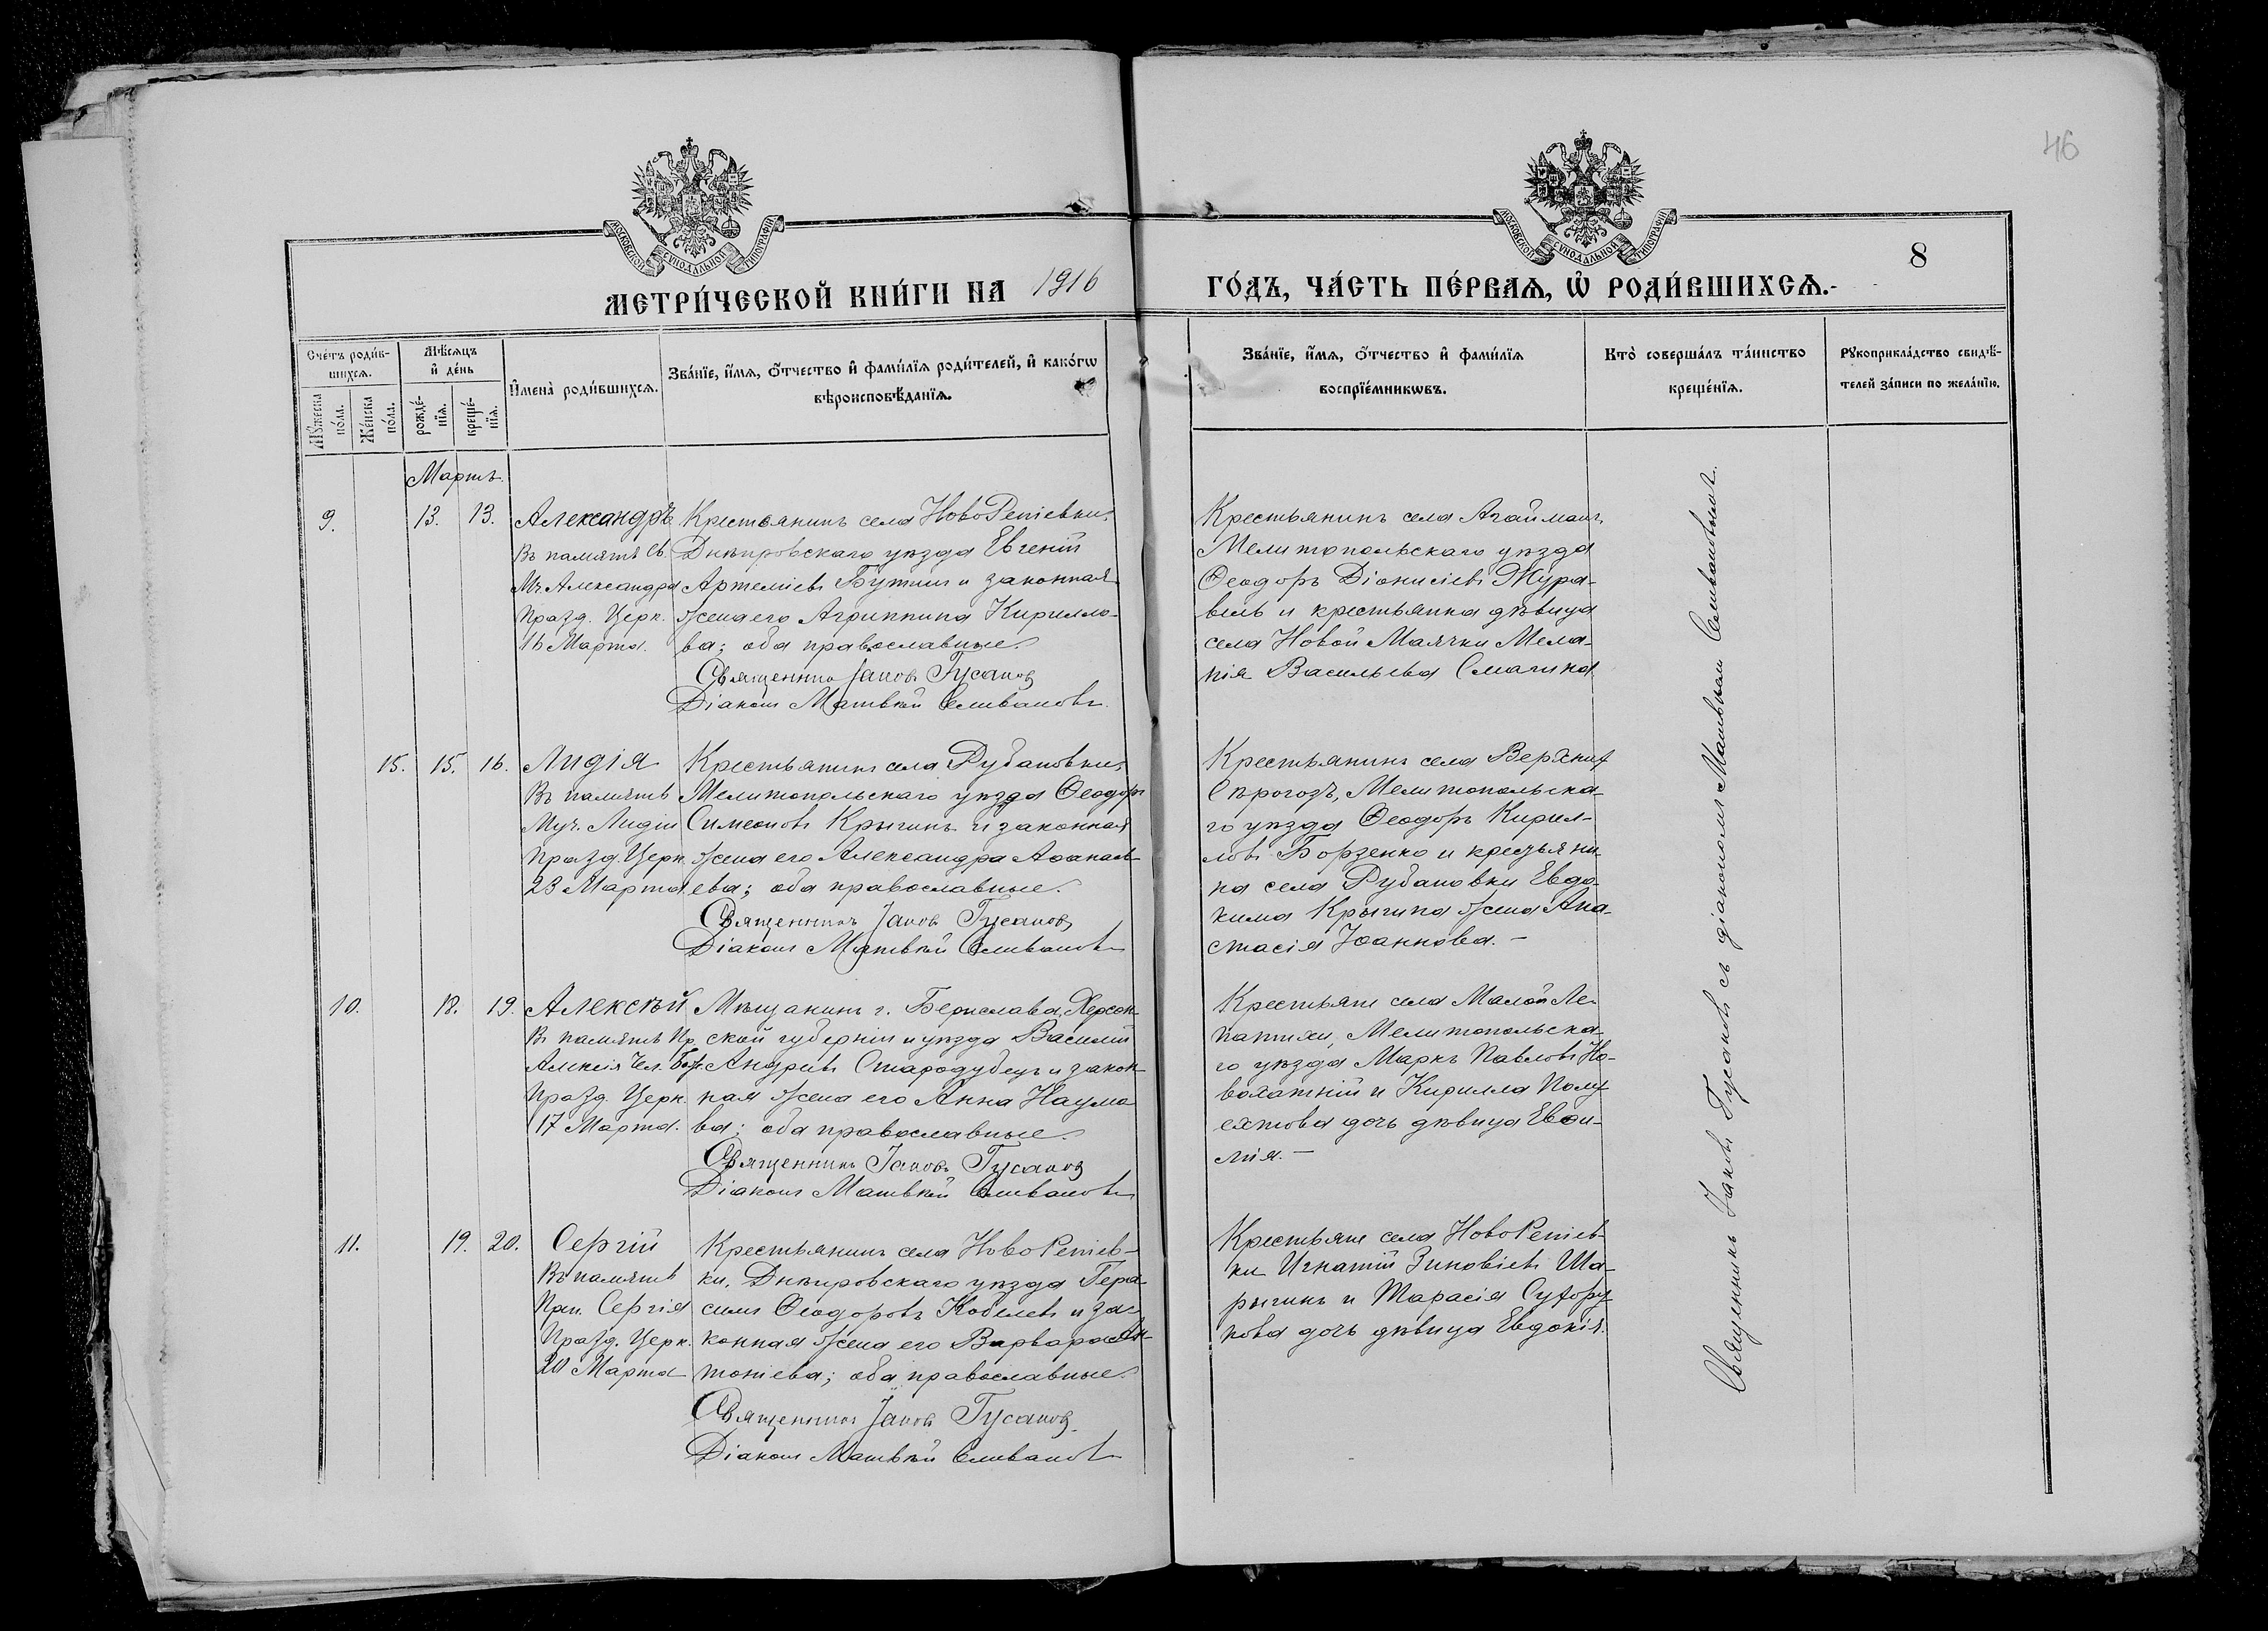 46
МОСКОВСКОЙ СУНОДАЛЬНОЙ ТИПОГРАФІИ
МОСКОВСКОЙ СУНОДАЛЬНОЙ ТИПОГРАФІИ
8
МЕТРИ́ЧЕСКОЙ КНИ́ГИ НА 1916 ГО́ДЪ, ЧА́СТЬ ПЕ́РВАѦ, Ѡ҆ РОДИ́ВШИХСѦ.
Сче́тъ роди́в-
шихсѧ.
Мꙋ́жеска по́ла.
Же́нска по́ла.
Мѣ́сѧцъ и҆ де́нь
рожде́-нїѧ.
креще́-нїѧ.
И҆мена̀ роди́вшихсѧ.
Зва́нїе, и҆́мѧ, ѻ҆́тчество и҆ фами́лїѧ роди́телей, и҆ како́гѡ
вѣроисповѣ́данїѧ.
Зва́нїе, и҆́мѧ, ѻ҆́тчество и҆ фами́лїѧ
воспрїе́мникѡвъ.
Кто̀ соверша́лъ та́инство
креще́нїѧ.
Рꙋкоприкла́дство свидѣ́-
телей за́писи по жела́нїю.
Мартъ.
9. 13. 13.
Александръ
Въ память Св.
Мч. Александра
Празд. Церк.
16 Марта.
Крестьянинъ села НовоРепіевки,
Днѣпровскаго уѣзда Евгеній
Артеміевъ Бутинъ и законная
жена его Агриппина Кирилло-
ва; оба православные.
Священникъ Іаковъ Гусаковъ
Діаконъ Матвѣй Селивановъ
Крестьянинъ села Агайманъ,
Мелитопольскаго уѣзда
Ѳеодоръ Діонисіевъ Жура-
вель и крестьянка дѣвица
села Новой Маячки Мела-
нія Васильева Смагина
15. 15. 16.
Лидія
Въ память
Муч. Лидіи
Празд. Церк.
23 Марта
Крестьянинъ села Рубановки,
Мелитопольскаго уѣзда Ѳеодоръ
Симеоновъ Крыгинъ и законная
жена его Александра Аѳанась-
ева; оба православные.
Священникъ Іаковъ Гусаковъ
Діаконъ Матвѣй Селивановъ
Крестьянинъ села Верхнихъ
Сѣрогозъ, Мелитопольска-
го уѣзда Ѳеодоръ Кирил-
ловъ Борзенко и крестьян-
ка села Рубановки Евдо-
кима Крыгина жена Ана-
стасія Іоаннова.-
10. 18. 19.
Алексѣй
Въ память Пр.
Алексія Чел. Бож.
Празд. Церк.
17 Марта.
Мѣщанинъ г. Берислава, Херсон-
ской губерніи и уѣзда Василій
Андреевъ Стародубецъ и закон-
ная жена его Анна Наумо-
ва; оба православные.
Священникъ Іаковъ Гусаковъ
Діаконъ Матвѣй Селивановъ
Крестьяне села Малой Ле-
патихи, Мелитопольска-
го уѣзда Маркъ Павловъ Но-
вохатній и Кирилла Полу-
ехтова дочь дѣвица Евѳи-
мія.-
11. 19. 20.
Сергій
Въ память
Прп. Сергія
Празд. Церк.
20 Марта
Крестьянинъ села НовоРепіев-
ки, Днѣпровскаго уѣзда Гера-
симъ Ѳеодоровъ Кобелевъ и за-
конная жена его Варвара Ан-
тоніева; оба православные.
Священникъ Іаковъ Гусаковъ
Діаконъ Матвѣй Селивановъ
Крестьяне села НовоРепіев-
ки Игнатій Зиновіевъ Ша-
рыгинъ и Тарасія Сухору-
кова дочь дѣвица Евдокія.
Священникъ Іаковъ Гусаковъ съ діакономъ Матвѣемъ Селивановымъ.